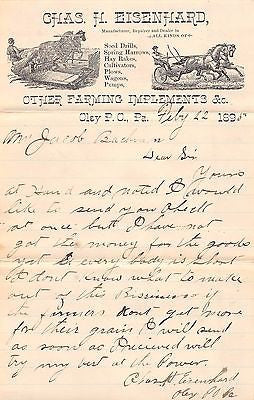 CHAS. H. EISENHARD,
Manufacturer, Repairer and Dealer in
ALL KINDS OF
Seed Drills,
Spring Harrows,
Hay Rakes,
Cultivators,
Plows,
Wagons,
Pumps,
OTHER FARMING IMPLEMENTS &c.
Oley P.O., Pa. Feby 22 189
Mr Jacob
Dear Sir
Yours
at hand and noted I would
like to send you Check
at once but I have not
got the money for the goods
yet every body is short
I dont know what to make
out of this Business if
the farmers dont get more
for their grain I will send
as soon as I recieved will
try my best at the Power.
Chas. H. Eisenhard
Oley P O Pa